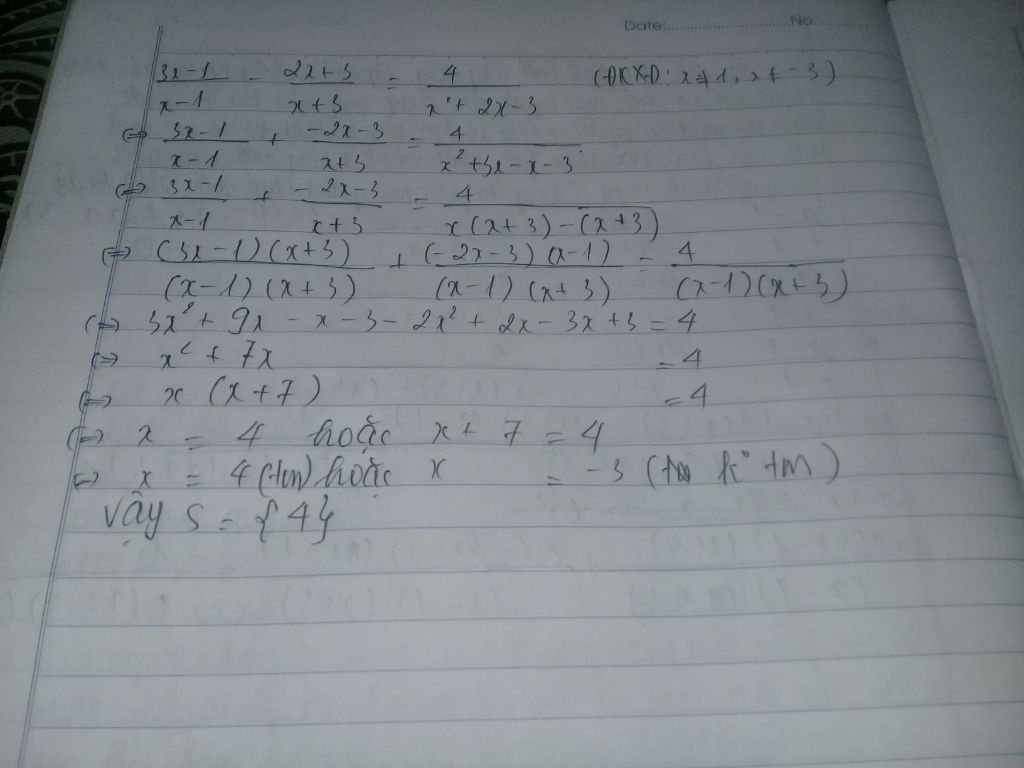 Date: No
(3x-1)/(x-1) - (2x+3)/(x+3) = 4/(x²+2x-3) (ĐKXĐ: x≠1, x≠-3)
⇔ (3x-1)/(x-1) + (-2x-3)/(x+3) = 4/(x²+3x-x-3)
⇔ (3x-1)/(x-1) + (-2x-3)/(x+3) = 4/(x(x+3)-(x+3))
⇔ (3x-1)(x+3)/(x-1)(x+3) + (-2x-3)(x-1)/(x-1)(x+3) = 4/(x-1)(x+3)
⇔ 3x²+9x-x-3-2x²+2x-3x+3=4
⇔ x²+7x =4
⇔ x(x+7) =4
⇔ x = 4 hoặc x+7=4
⇔ x = 4(tm) hoặc x = -3 (k° tm)
Vậy S={4}